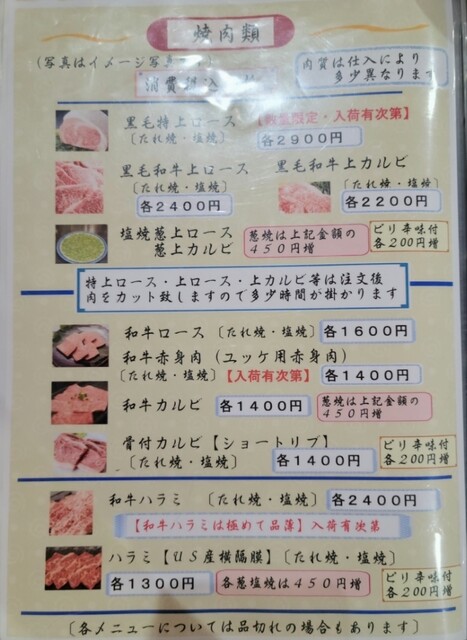 焼肉類
(写真はイメージ写真
肉質は仕入により
多少異なります
消費税込
黒毛特上ロース 【数量限定・入荷有次第】
〔たれ焼・塩焼〕 各2900円
黒毛和牛上ロース
〔たれ焼・塩焼〕
各2400円
黒毛和牛上カルビ
〔たれ焼・塩焼〕
各2200円
塩焼葱上ロース
葱上カルビ
葱焼は上記金額の
450円増
ピリ辛味付
各200円増
特上ロース・上ロース・上カルビ等は注文後
肉をカット致しますので多少時間が掛かります
和牛ロース〔たれ焼・塩焼〕各1600円
和牛赤身肉(ユッケ用赤身肉)
〔たれ焼・塩焼〕【入荷有次第】 各1400円
和牛カルビ 各1400円
葱焼は上記金額の
450円増
骨付カルビ【ショートリブ】
〔たれ焼・塩焼〕 各1400円
ピリ辛味付
各200円増
和牛ハラミ 〔たれ焼・塩焼〕 各2400円
【和牛ハラミは極めて品薄】入荷有次第
ハラミ【US産横隔膜】〔たれ焼・塩焼〕
各1300円 各葱塩焼は450円増
ピリ辛味付
各200円増
〔各メニューについては品切れの場合もあります〕